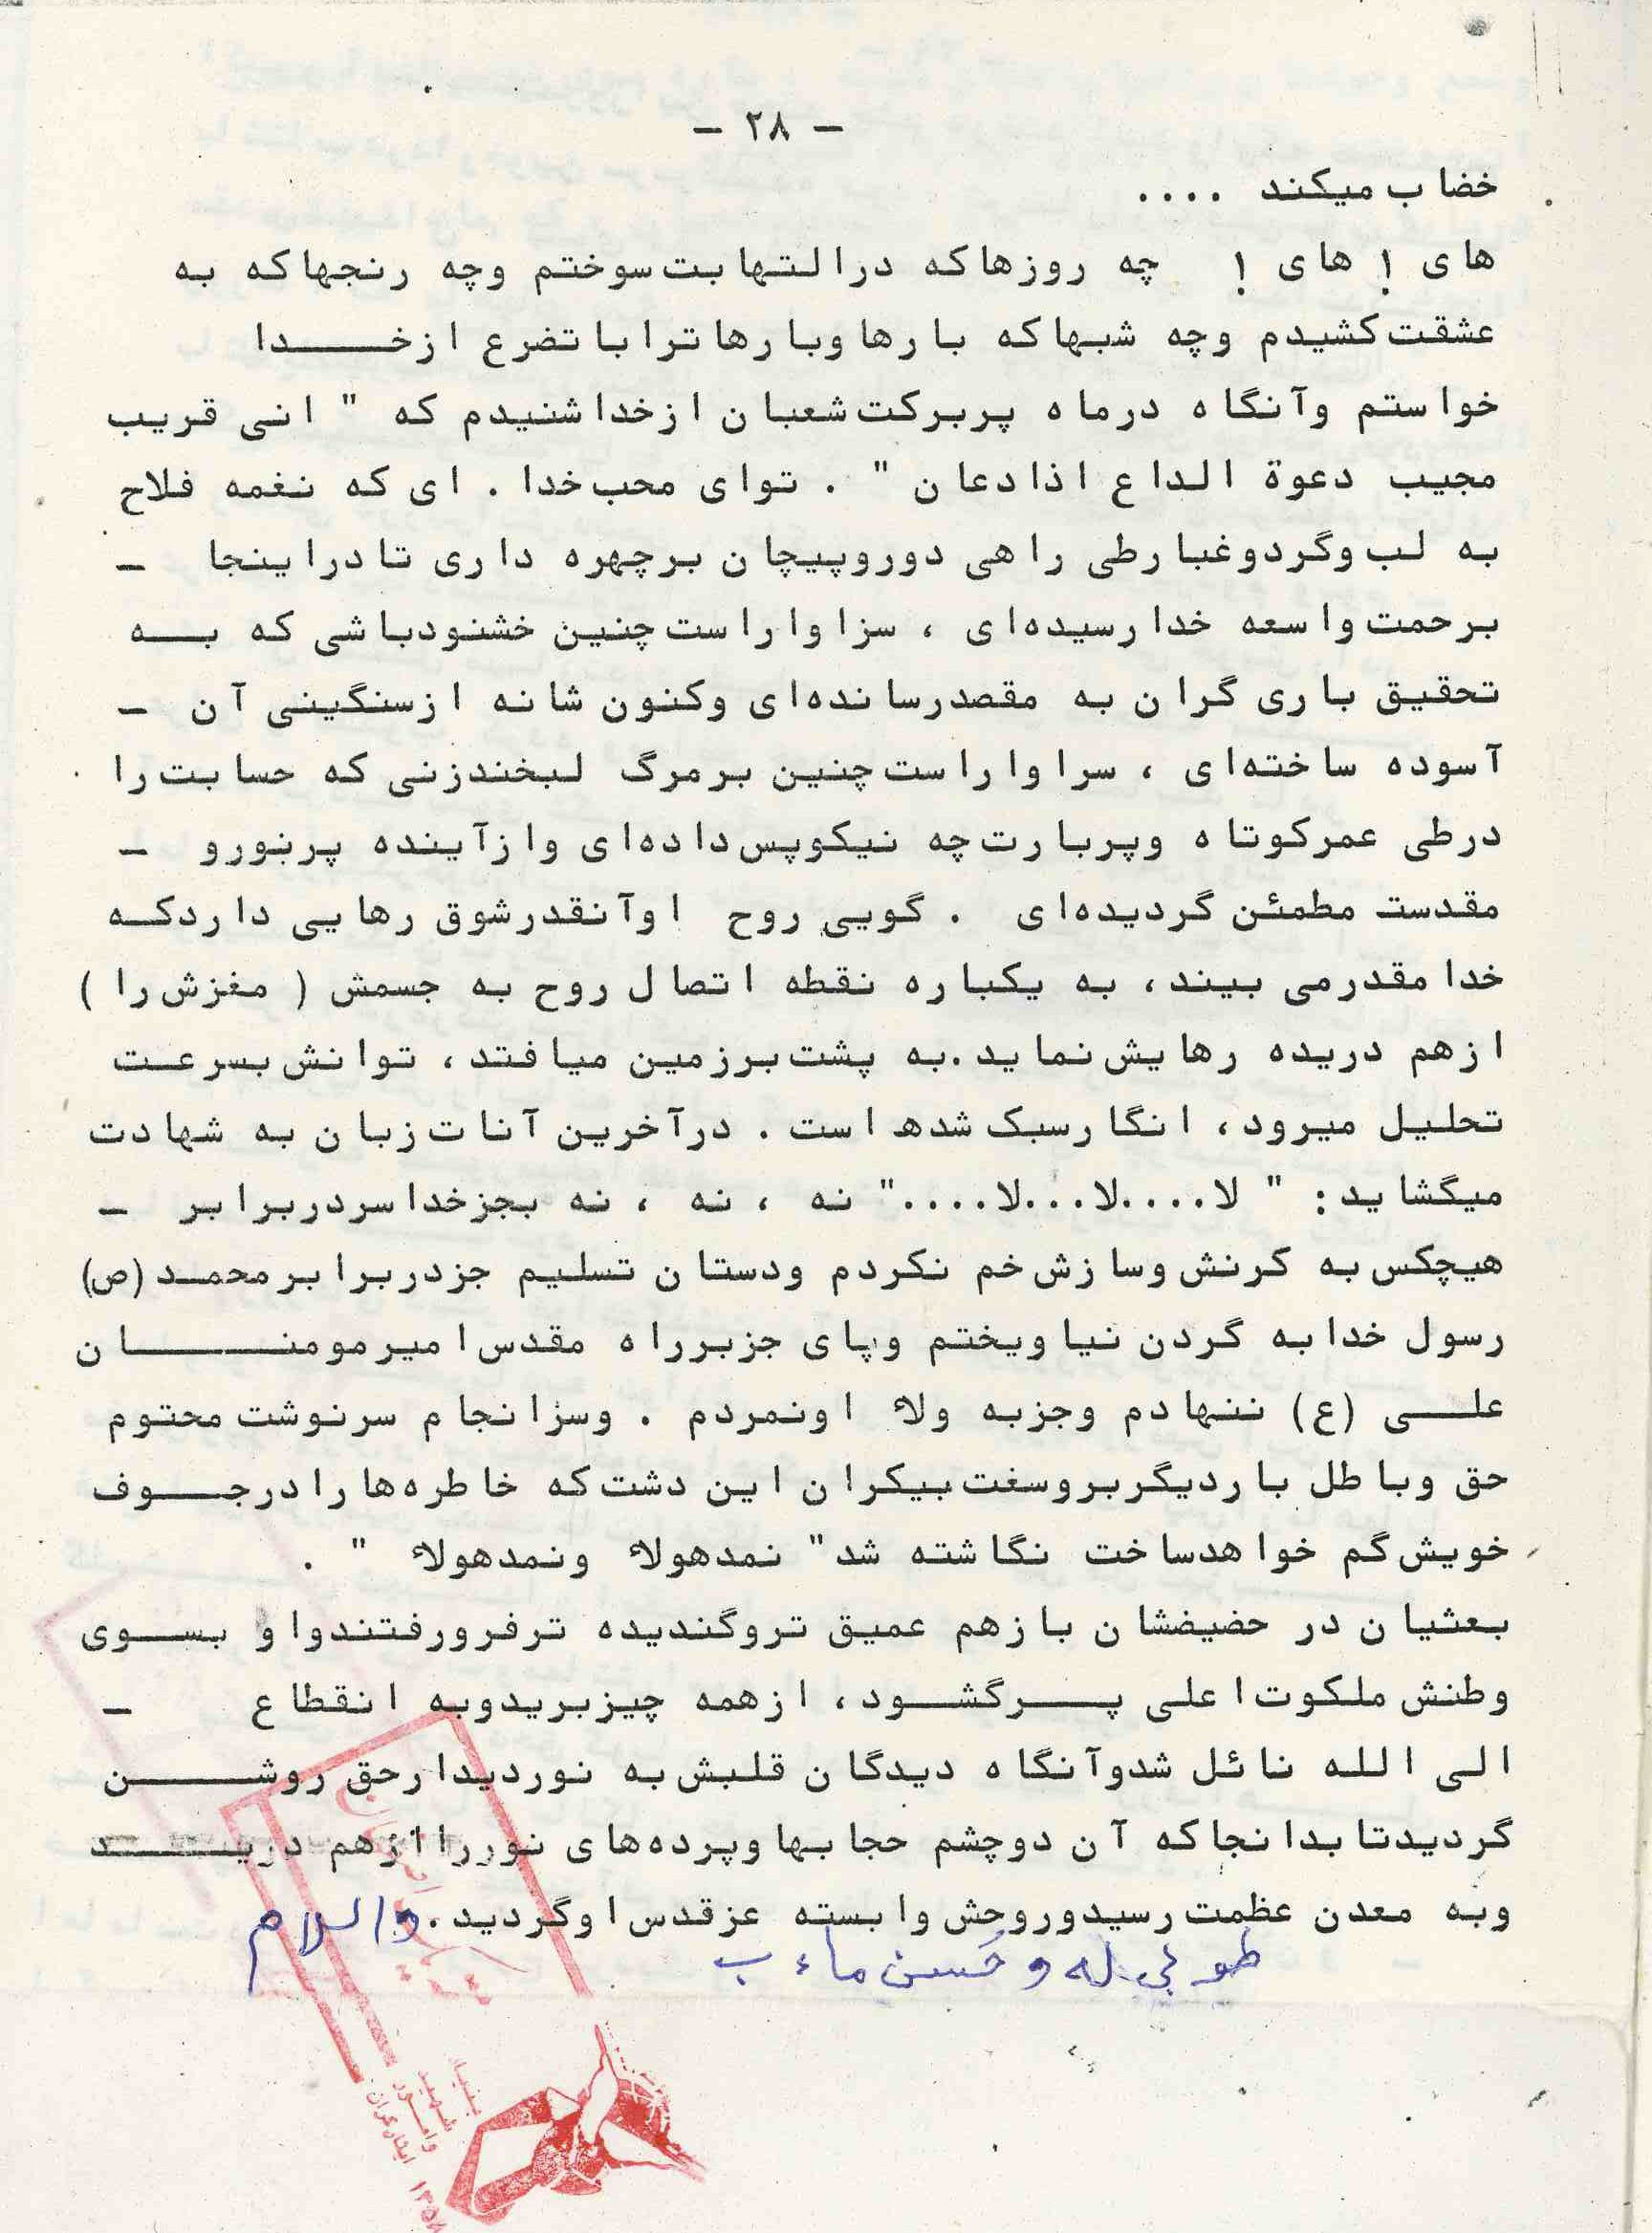 - ۲۸ -
خضاب میکند ....
های ! های ! چه روزها که در التهابت سوختم وچه رنجها که به
عشقت کشیدم وچه شبها که بارها وبارها ترا با تضرع از خدا
خواستم وآنگاه درماه پربرکت شعبان ازخدا شنیدم که " انی قریب
مجیب دعوة الداع اذا دعان " . توای محب خدا . ای که نغمه فلاح
به لب وگردوغبار طی راهی دوروپیچان برچهره داری تا دراینجا -
برحمت واسعه خدا رسیده‌ای ، سزاوار است چنین خشنود باشی که به
تحقیق باری گران به مقصد رسانده‌ای وکنون شانه ازسنگینی آن -
آسوده ساخته‌ای ، سراوار است چنین برمرگ لبخند زنی که حسابت را
درطی عمرکوتاه وپربارت چه نیکو پس داده‌ای وازآینده پرنورو -
مقدست مطمئن گردیده‌ای . گویی روح اوآنقدر شوق رهایی دارد که
خدا مقدر می بیند ، به یکباره نقطه اتصال روح به جسمش ( مغزش را )
ازهم دریده رهایش نماید . به پشت برزمین میافتد ، توانش بسرعت
تحلیل میرود ، انگار سبک شده است . درآخرین آنات زبان به شهادت
میگشاید : " لا....لا...لا...." نه ، نه ، نه بجز خدا سر دربرابر -
هیچکس به کرنش وسازش خم نکردم ودستان تسلیم جز دربرابر محمد (ص)
رسول خدا به گردن نیاویختم وپای جز برراه مقدس امیرمومنان
علی (ع) ننهادم وجزبه ولاٴ اونمردم . وسزانجام سرنوشت محتوم
حق وباطل باردیگر بروسغت بیکران این دشت که خاطره‌ها را درجوف
خویش گم خواهد ساخت نگاشته شد " نمدهولاٴ ونمدهولاٴ " .
بعثیان در حضیضشان بازهم عمیق تروگندیده ترفرورفتند واو بسوی
وطنش ملکوت اعلی پرگشود ، ازهمه چیز برید وبه انقطاع -
الی الله نائل شد وآنگاه دیدگان قلبش به نور دیدار حق روشن
گردید تا بدانجا که آن دوچشم حجابها وپرده‌های نور را ازهم درید
وبه معدن عظمت رسید وروحش وابسته عزقدس اوگردید . والسلام
طوبی له و حَسن ماء ب
بنیاد
شهید
وامور
ایثارگران
۱۳۵۸